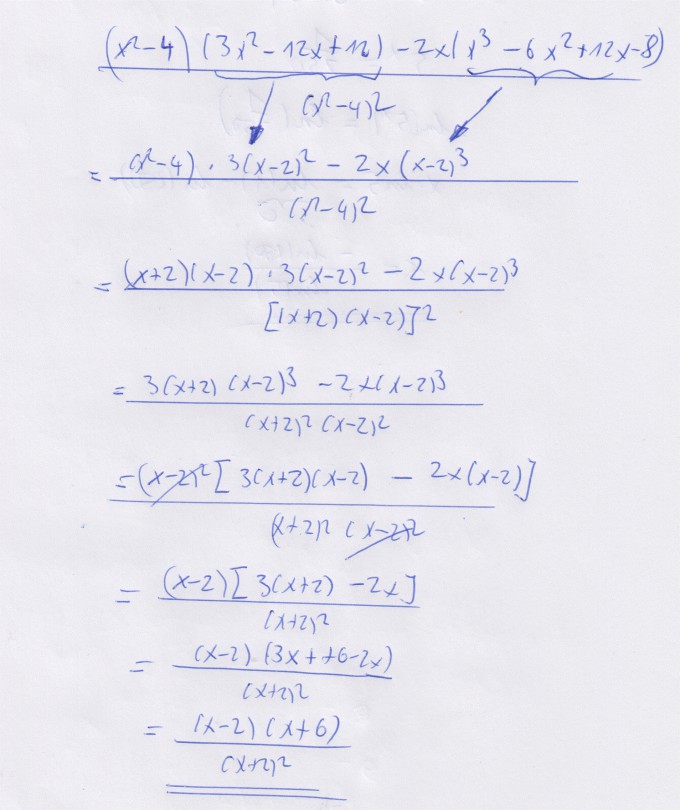 (x²-4) (3x²-12x+12) -2x(x³-6x²+12x-8)
(x²-4)²
= (x²-4) · 3(x-2)² - 2x(x-2)³
(x²-4)²
= (x+2)(x-2) · 3(x-2)² - 2x(x-2)³
[(x+2)(x-2)]²
= 3(x+2)(x-2)³ - 2x(x-2)³
(x+2)²(x-2)²
= (x-2)²[3(x+2)(x-2) - 2x(x-2)]
(x+2)² (x-2)²
= (x-2)[3(x+2) - 2x]
(x+2)²
= (x-2)(3x++6-2x)
(x+2)²
= (x-2)(x+6)
(x+2)²